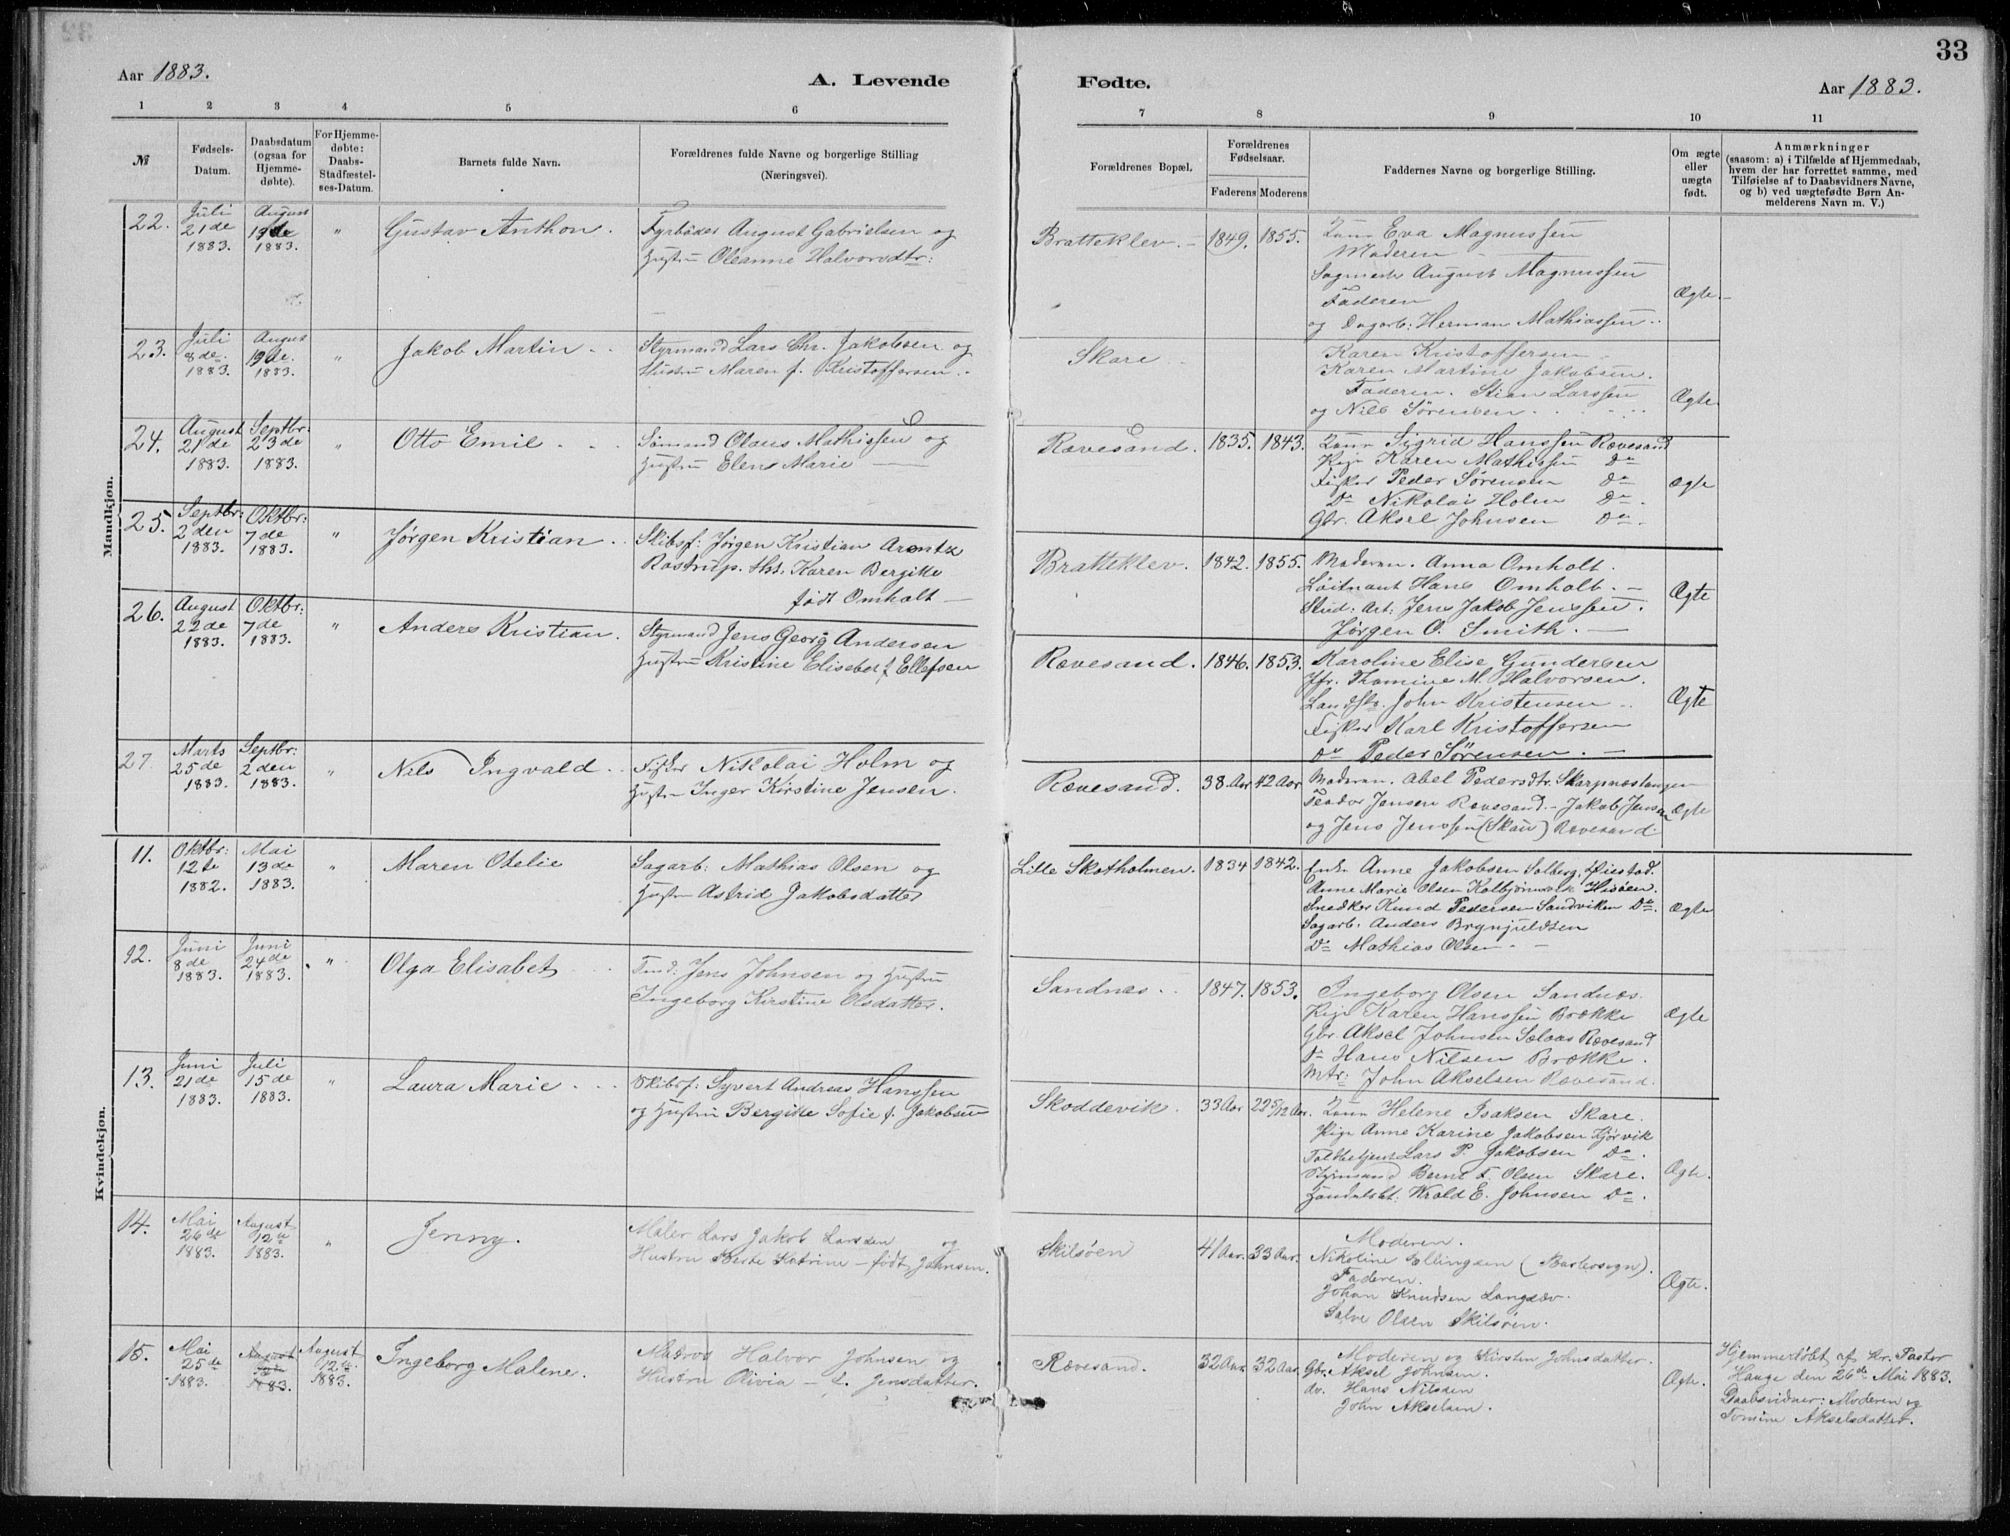 33
Aar 1883.
A. Levende
Fødte.
Aar 1883.
1 2 3 4 5 6
7 8 9 10 11
№
Fødsels-
Datum.
Daabsdatum
(ogsaa for
Hjemme-
døbte).
For Hjemme-
døbte:
Daabs-
Stadfæstel-
ses-Datum.
Barnets fulde Navn.
Forældrenes fulde Navne og borgerlige Stilling
(Næringsvei).
Forældrenes Bopæl.
Forældrenes
Fødselsaar.
Faderens Moderens
Faddernes Navne og borgerlige Stilling.
Om ægte
eller
uægte
født.
Anmærkninger
(saasom: a) i Tilfælde af Hjemmedaab,
hvem der har forrettet samme, med
Tilføielse af to Daabsvidners Navne,
og b) ved uægtefødte Børn An-
melderens Navn m. V.)
Mandkjøn.
22.
Juli
21de
1883.
August
19de
1883.
"
Gustav Anthon.
Fyrbøder August Gabrielsen og
Hustru Oleanne Halvorsdtr:
Bratteklev.
1849. 1855.
Eva Magnussen
Moderen
August Magnussen
Faderen
og Dagarb: Herman Mathiassen
Ægte.
23.
Juli
8de
1883.
August
19de
1883.
"
Jakob Martin
Styrmand Lars Chr. Jakobsen og
Hustru Maren f. Kristoffersen
Skare
Karen Kristoffersen
Karen Martine Jakobsen.
Faderen. Stian Larssen
og Nils Sørensen
Ægte
24.
August
21de
1883.
Septbr:
23de
1883.
"
Otto Emil
Sømand Olaus Mathissen og
Hustru Elen Marie
Rævesand.
1835. 1843.
Sigrid Hanssen Rævesand
Pige Karen Mathissen Do
Fisker Peder Sørensen Do
Do Nikolai Holm Do
Gbr. Aksel Johnsen Do
ægte
25.
Septbr:
2den
1883.
Oktbr:
7de
1883.
"
Jørgen Kristian
Skibsf: Jørgen Kristian Arentz
Rostrup. Hst. Karen Bergitte
født Omholt
Bratteklev.
1842. 1855.
Moderen. Anna Omholt.
Løitnant Hans Omholt.
Stud: Art: Jens Jakob Jenssen.
Jørgen O. Smith.
Ægte
26.
August
22de
1883.
Oktbr:
7de
1883.
"
Anders Kristian.
Styrmand Jens Georg Andersen
Hustru Kristine Elisebet f. Ellefsen
Rævesand.
1846. 1853.
Karoline Elise Gundersen
Jfr. Thomine M. Halvorsen.
John Kristensen
Fisker Karl Kristoffersen
Do Peder Sørensen.
Ægte
27.
Marts
25de
1883.
Septbr:
2den
1883.
"
Nils Ingvald
Fisker Nikolai Holm og
Hustru Inger Kirstine Jensen.
Rævesand.
38 Aar 42 Aar
Moderen. Abel Pedersdtr. Skarpnæstangen
Teodor Jensen Rævesand. Jakob Jensen
og Jens Jenssen (Skau) Rævesand.
Ægte
Kvindekjøn.
11.
Oktbr:
12te
1882.
Mai
13de
1883.
"
Maren Otelie
Sagarb: Mathias Olsen og
Hustru Astrid Jakobsdatter
Lille Skotholmen.
1834 1842.
Enke Anne Jakobsen Solberg,
Anne Marie Olsen Hisøen.
Snedker Knud Pedersen Sandviken Do.
Sagarb: Anders Brynjuldsen
Do Mathias Olsen
Ægte
12.
Juni
8de
1883.
Juni
24de
1883.
"
Olga Elisabet
Jens Johnsen og Hustru
Ingeborg Kirstine Olsdatter.
Sandnes
1847. 1853.
Ingeborg Olsen Sandnæs.
Pige Karen Hanssen Brække
Gbr. Aksel Johnsen Rævesand
Do Hans Nilsen Brække.
Mtr: John Akselsen Rævesand.
Ægte
13.
Juni
21de
1883.
Juli
15de
1883.
"
Laura Marie
Skibsf: Syvert Andreas Hanssen
og Hustru Bergitte Sofie f. Jakobsen
Skoddevik.
33 Aar 22 5/12 Aar.
Helene Isaksen Skare.
Pige Anne Karine Jakobsen Kjørvik
Toldbetjent Lars P. Jakobsen Do.
Styrmand Bernt T. Olsen Skare.
Handelsbt: Wrold E. Johnsen Do.
Ægte.
14.
Mai
26de
1883.
August
12te
1883.
"
Jenny.
Maler Lars Jakob Larsen og
Hustru Berte Katrine – født Johnsen.
Skilsøen
41 Aar. 33 Aar.
Moderen.
Nikoline Ellingsen (Barbosogn).
Faderen.
Johan Knudsen Langsæv.
Salve Olsen Skilsøen.
Ægte.
15.
Mai
25de
1883.
August
1883.
August
12te
1883.
Ingeborg Malene.
Matros Halvor Johnsen og
Hustru Olivia – f. Jensdatter.
Rævesand.
32 Aar. 32 Aar.
Moderen og Kirsten Johnsdatter.
Gbr. Aksel Johnsen.
do. Hans Nilsen
John Akselsen.
Ægte.
Hjemmedøbt af Hr. Pastor
Hauge den 26de Mai 1883.
Daabsvidner: Moderen og
Tomine Akselsdatter.